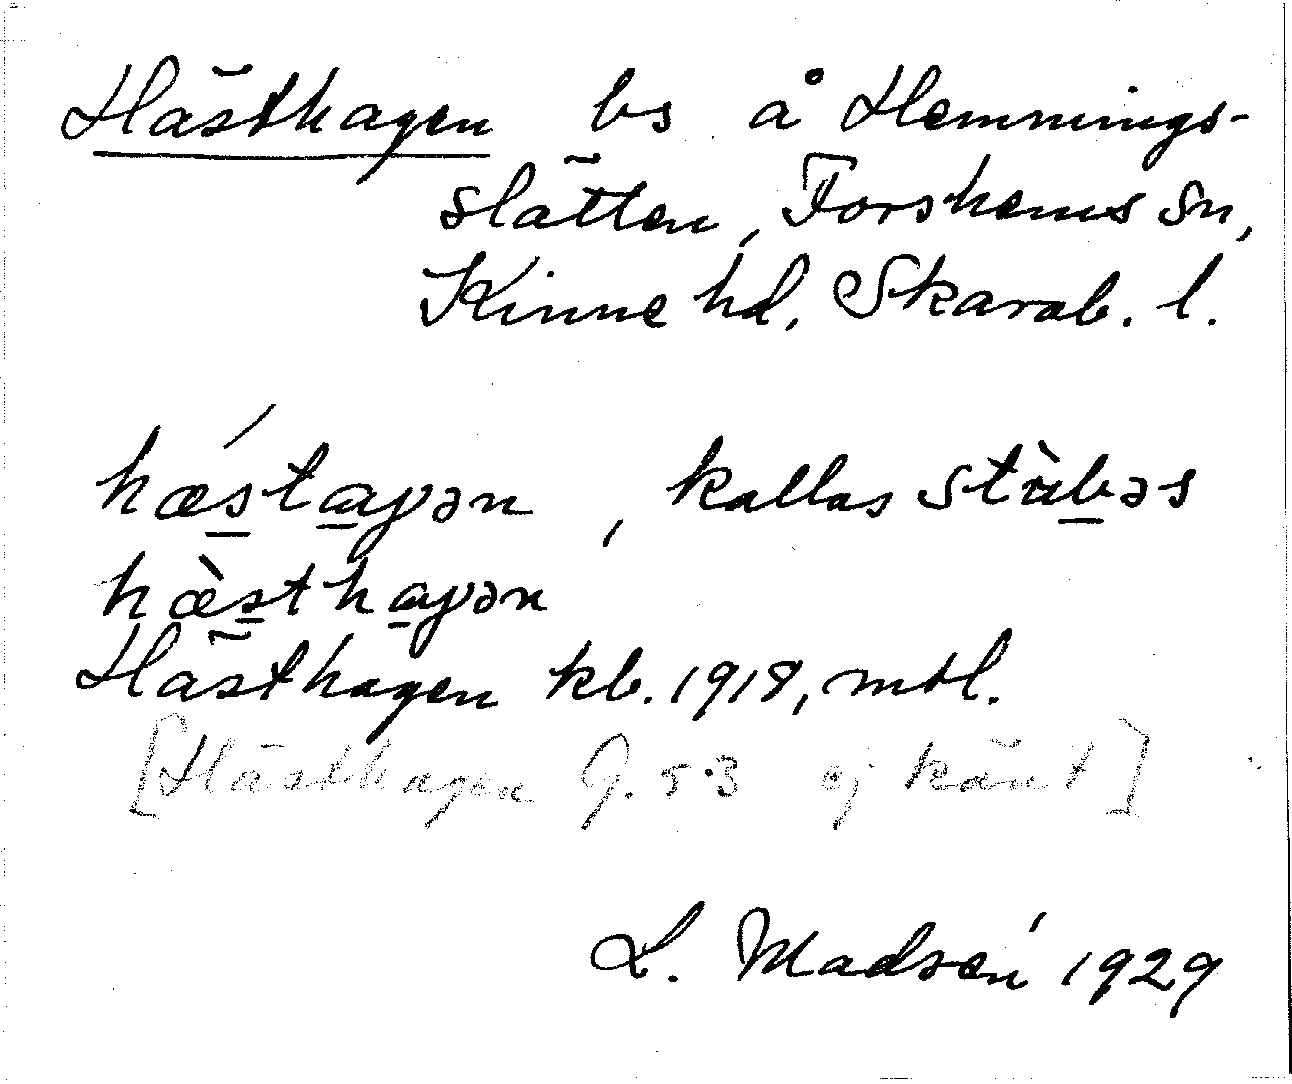 Hästhagen bs å Hemmings-
slätten, Forshems sn,
Kinne hd, Skarab. l.
hǽstaɡən, kallas stùbəs
hæ̀sthaɡən
Hästhagen kb. 1918, mtl.
[Hästhagen G. 53 ej känt]
L. Madsén 1929